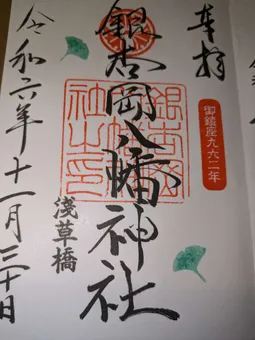 奉拝
御鎮座九六二年
銀杏岡八幡神社
銀杏岡八幡神社之印
浅草橋
令和六年十一月三十日